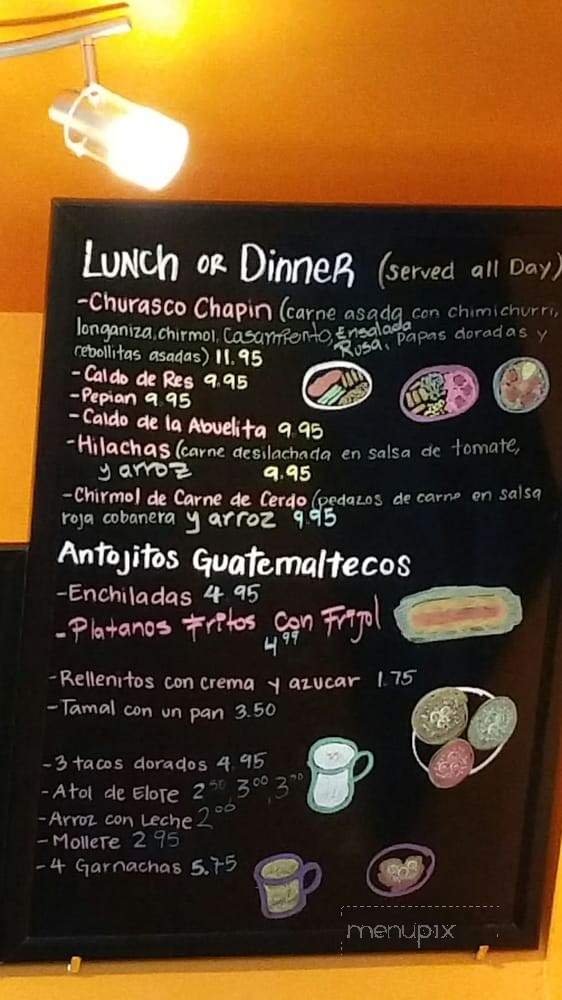 Lunch or Dinner (served all Day)
-Churasco Chapin (carne asada con chimichurri,
longaniza, chirmol, Casamiento, Ensalada Rusa, papas doradas y
rebollitas asadas) 11.95
-Caldo de Res 9.95
-Pepian 9.95
-Caldo de la Abuelita 9.95
-Hilachas (carne desilachada en salsa de tomate,
y arroz 9.95
-Chirmol de Carne de Cerdo (pedazos de carne en salsa
roja cobanera y arroz 9.95
Antojitos Guatemaltecos
-Enchiladas 4.95
-Platanos Fritos con Frijol
4.99
-Rellenitos con crema y azucar 1.75
-Tamal con un pan 3.50
-3 tacos dorados 4.95
-Atol de Elote 2.50, 3.00,
-Arroz con Leche 2.00
-Mollete 2.95
-4 Garnachas 5.75
menupix